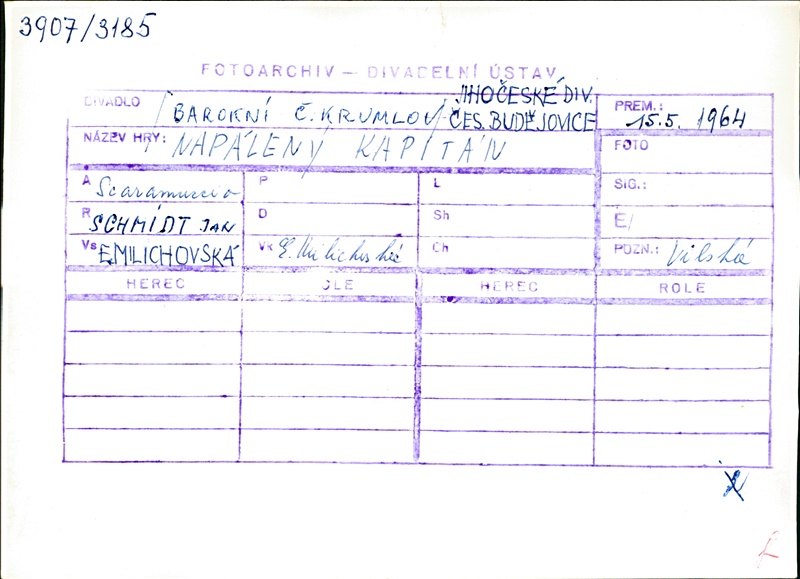 3907/3185
FOTOARCHIV – DIVADELNÍ ÚSTAV
DIVADLO BAROKNÍ Č. KRUMLOV JIHOČESKÉ DIV. ČES. BUDĚJOVICE PREM.: 15.5. 1964
NÁZEV HRY: NAPÁLENÝ KAPITÁN FOTO
A Scaramuccio P L SIG.:
R SCHMÍDT JAN D Sh E/
Vs E.MILICHOVSKÁ Vk E. Milichovská Ch POZN.: Vilská
HEREC OLE HEREC ROLE